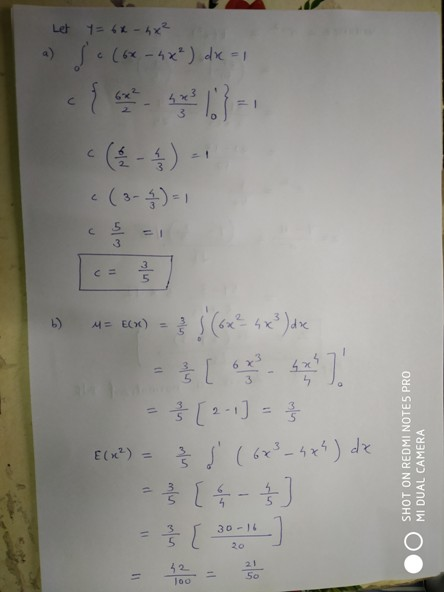 Let Y = 6x - 4x²
a) ∫₀¹ c (6x - 4x²) dx = 1
c { 6x²/2 - 4x³/3 |₀¹ } = 1
c (6/2 - 4/3) = 1
c (3 - 4/3) = 1
c 5/3 = 1
c = 3/5
b) M = E(x) = 3/5 ∫₀¹ (6x² - 4x³) dx
= 3/5 [ 6x³/3 - 4x⁴/4 ]₀¹
= 3/5 [2 - 1] = 3/5
E(x²) = 3/5 ∫₀¹ (6x³ - 4x⁴) dx
= 3/5 [ 6/4 - 4/5 ]
= 3/5 [ 30-16/20 ]
= 42/100 = 21/50
SHOT ON REDMI NOTE5 PRO
MI DUAL CAMERA